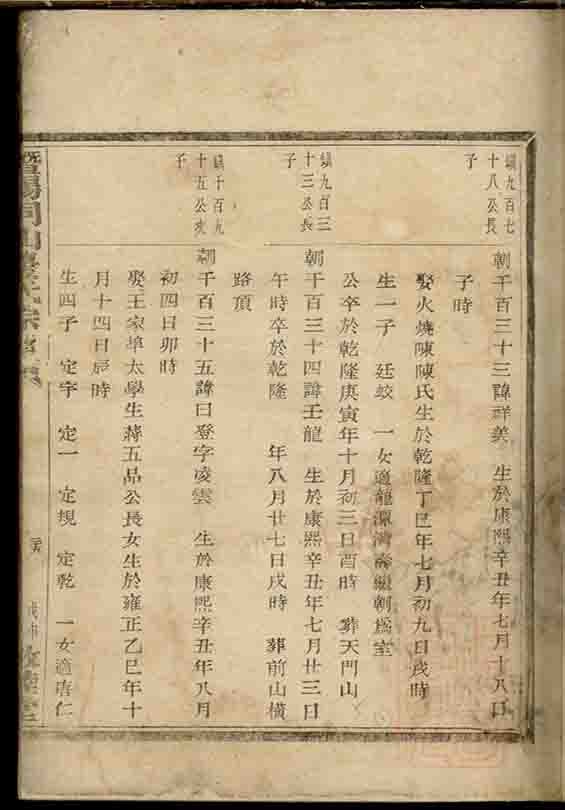 鎮九百七
十八公長
子
朝千百三十三諱祥美 生於康熙辛丑年七月十八日
子時
娶火燒陳陳氏生於乾隆丁巳年七月初九日戌時
生一子 廷蛟 一女適龍潭灣 朝爲室
公卒於乾隆庚寅年十月初三日酉時 葬天門山
鎮九百三
十三公長
子
朝千百三十四諱壬龍 生於康熙辛丑年七月廿三日
午時卒於乾隆 年八月廿七日戌時 葬前山橫
路頂
鎮十百九
十五公次
子
朝千百三十五諱曰登字凌雲 生於康熙辛丑年八月
初四日卯時
娶王家埠太學生蔣五品公長女生於雍正乙巳年十
月十四日辰時
生四子 定宇 定一 定規 定乾 一女適唐仁
暨陽同山 氏宗